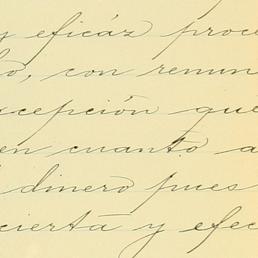 y eficáz proce
do, con renun
xcepción que
en cuanto a
dinero pues
cierta y efec